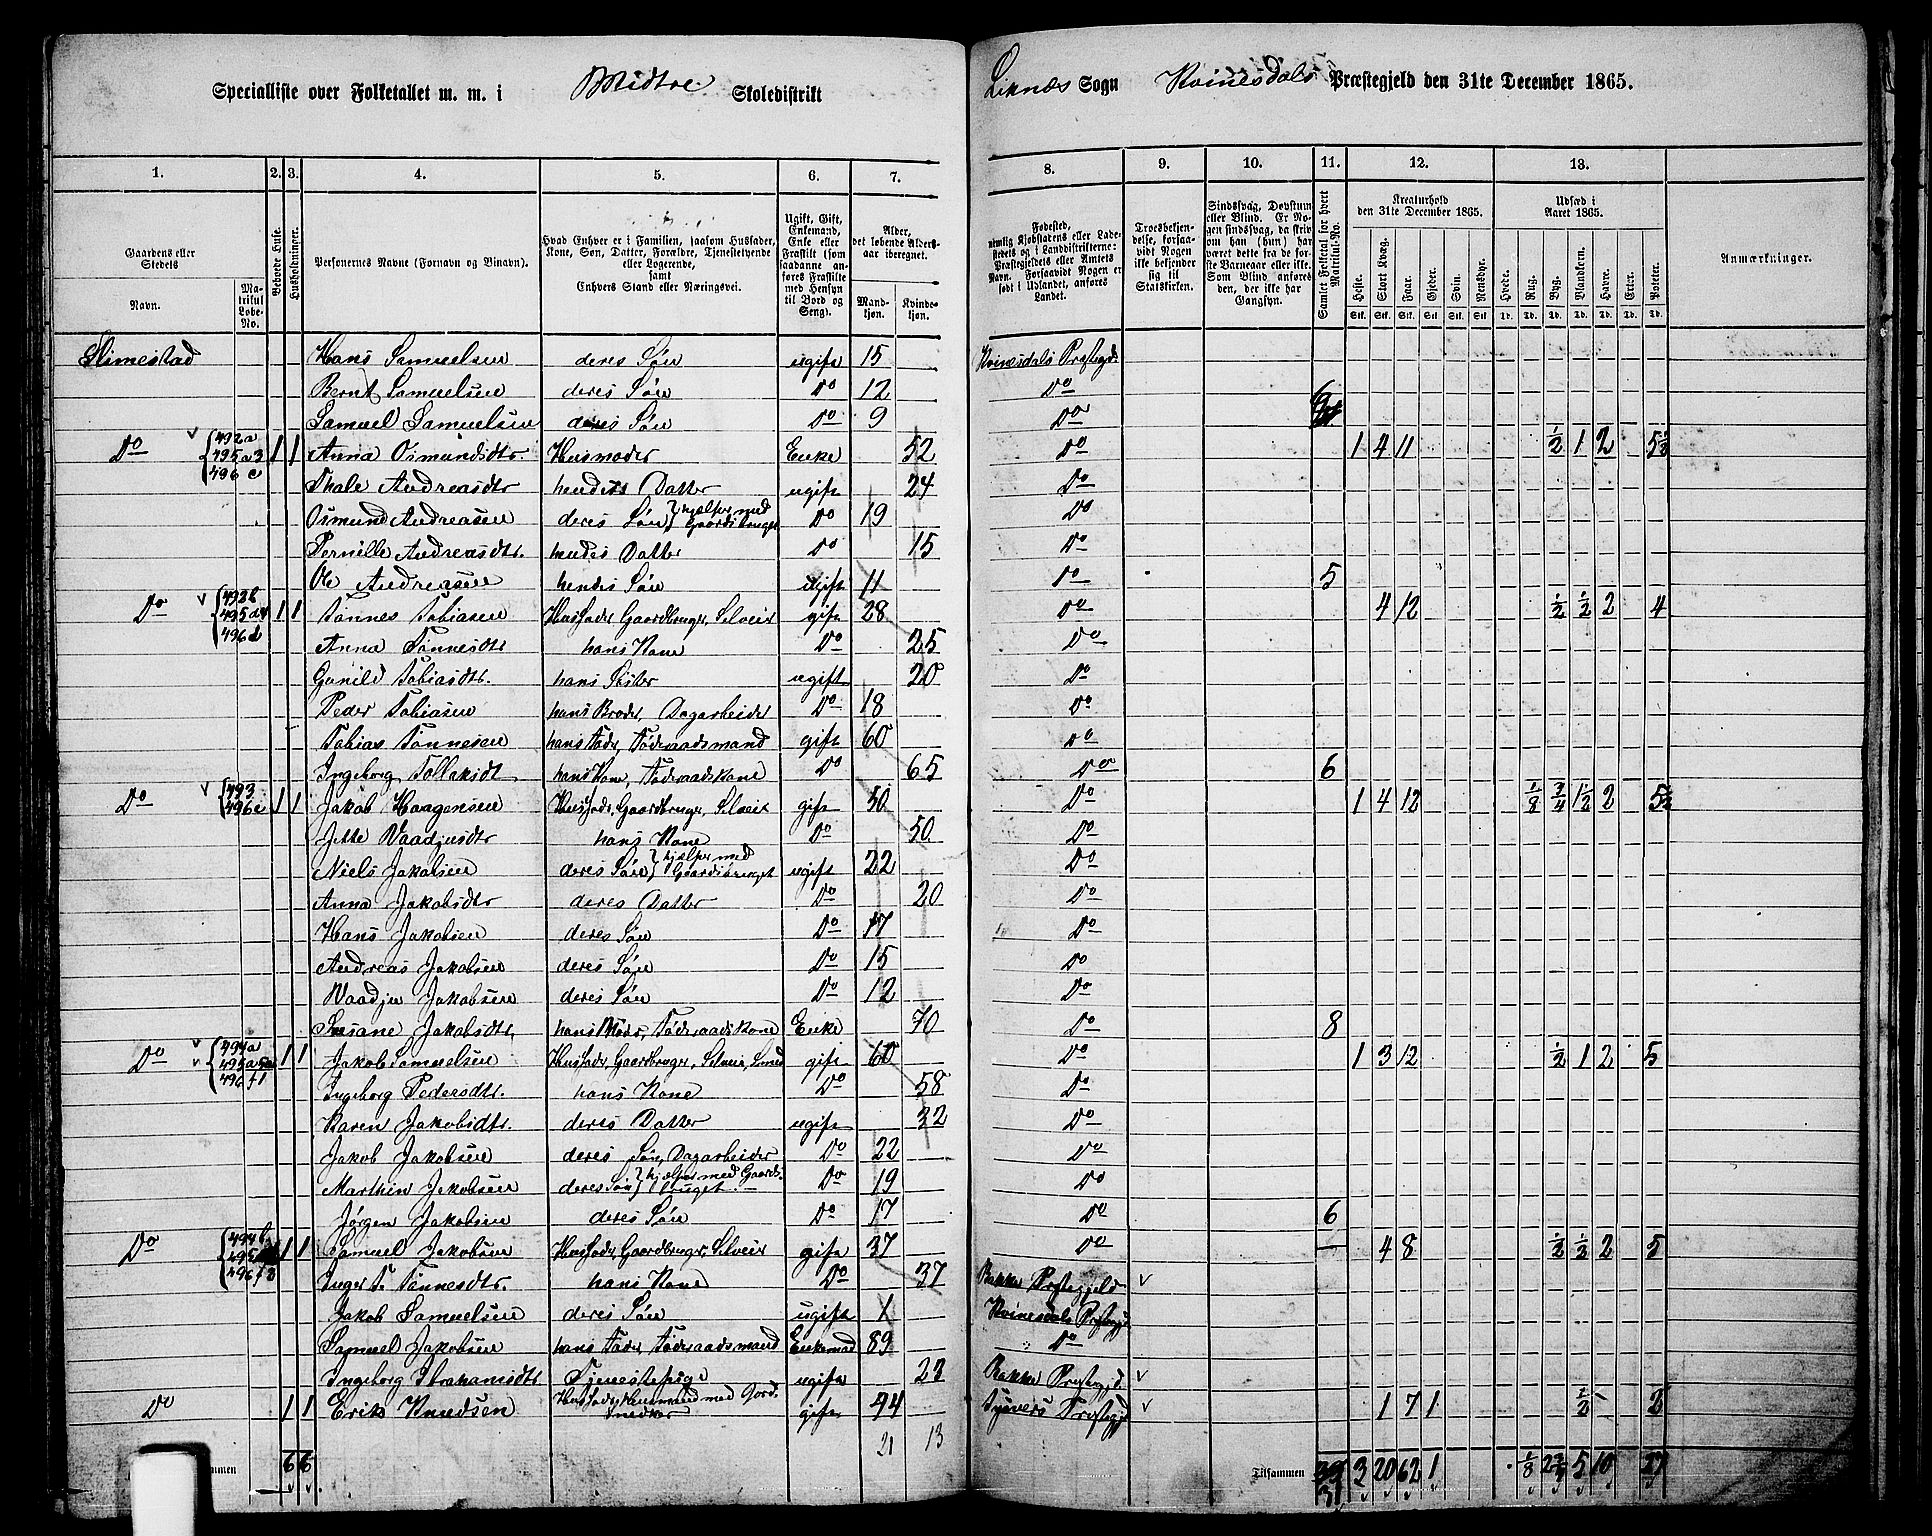 Specialliste over Folketallet m. m. i Midtre Skoledistrikt Liknæs Sogn Kvinesdals Præstegjeld den 31te December 1865.
1. 2. 3. 4. 5. 6. 7. 8. 9. 10. 11. 12. 13.
Gaardens eller Stedets
Navn.
Matrikul Løbe-No.
Beboede Huse.
Husholdninger.
Personernes Navne (Fornavn og Tilnavn).
Hvad Enhver er i Familien, saasom Husfader, Kone, Søn, Datter, Forældre, Tjenestetyende eller Logerende, samt Enhvers Stand eller Næringsvei.
Ugift, Gift, Enkemand, Enke eller Fraskilt (som saadanne anføres de Fraskilte med Hensyn til Bord og Seng).
Alder, det løbende Alders-aar iberegnet.
Mandkjøn. Kvindekjøn.
Fødested, nemlig Kjøbstadens eller Ladestedets og i Landdistrikterne: Præstegjeldets eller Amtets Navn. Forsaavidt Nogen er født i Udlandet, anføres Landet.
Troesbekjendelse, forsaavidt Nogen ikke bekjender sig til Statskirken.
Sindssvag, Døvstum eller Blind. Er Nogen sindssvag, da skrives om han (hun) har været dette fra de første Barneaar eller ikke. Som Blind anføres den, der ikke har Gangsyn.
Samlet Folketal for hvert Matrikul-No.
Kreaturhold den 31te December 1865.
Heste. Stort Kvæg. Faar. Gjeder. Svin. Rensdyr.
Udsæd i Aaret 1865.
Hvede. Rug. Byg. Blandkorn. Havre. Erter. Poteter.
Anmærkninger.
Slimestad Hans Samuelsen deres Søn ugift 15 Kvinesdals Prstgjd.
Bernt Samuelsen deres Søn Do 12 Do
Samuel Samuelsen deres Søn Do 9 Do
Do 492a 495a3 496c 1 1 Anna Osmundsdtr. Husmoder Enke 52 Do 1 4 11 1/2 1 2 5 1/2
Thale Andreasdtr hendes Datter ugift 24 Do
Osmund Andreasen deres Søn hjælper med Gaardsbruget Do 19 Do
Pernille Andreasdtr. hendes Datter Do 15 Do
Ole Andreasen hendes Søn ugift 11 Do 5
Do 492b 495a4 496d 1 1 Tønnes Tobiasen Husfader, Gaardbruger, Selveier gift 28 Do 4 12 1/2 1/2 2 4
Anna Tønnesdtr hans Kone Do 25 Do
Gunild Tobiasdtr. hans Søster ugift 20 Do
Peder Tobiasen hans Broder, Dagarbeider Do 18 Do
Tobias Tønnesen hans Fader, Føderaadsmand gift 60 Do
Ingeborg Tollaksdt hans Kone, Føderaadskone Do 65 Do 6
Do 493 496e 1 1 Jakob Haagensen Husfader, Gaardbruger, Selveier gift 50 Do 1 4 12 1/8 3/4 1 1/2 2 5 1/2
Jette Vaadjusdtr hans Kone Do 50 Do
Niels Jakobsen deres Søn hjælper med Gaardsbruget ugift 22 Do
Anna Jakobsdtr deres Datter Do 20 Do
Hans Jakobsen deres Søn Do 17 Do
Andreas Jakobsen deres Søn Do 15 Do
Vaadju Jakobsen deres Søn Do 12 Do
Susane Jakobsdtr. hans Moder, Føderaadskone Enke 70 Do 8
Do 494a 496f1 1 1 Jakob Samuelsen Husfader, Gaardbruger, Selveier, Smed gift 60 Do 1 3 12 1/2 1 2 5
Ingeborg Pedersdtr. hans Kone Do 58 Do
Karen Jakobsdtr. deres Datter ugift 32 Do
Jakob Jakobsen deres Søn, Dagarbeider Do 22 Do
Marthin Jakobsen deres Søn hjælper med Gaardsbruget. Do 19 Do
Jørgen Jakobsen deres Søn Do 17 Do 6
Do 494b 495 496f2 1 1 Samuel Jakobsen Husfader, Gaardbruger, Selveier gift 37 Do 4 8 1/2 1/2 2 5
Inger T. Tønnesdtr. hans Kone Do 37 Bakke Prstegjeld
Jakob Samuelsen deres Søn ugift 1 Kvinesdals Prstgjd
Samuel Jakobsen hans Fader, Føderaadsmand Enkemand 89 Do
Ingeborg Abrahamsdtr Tjenestepige ugift 23 Bakke Prstegjd.
Do 1 1 Erik Knudsen Husfader, Huusmand med Jord. Snedker gift 44 Prstegjd 1 7 1 1/2 2
21 13
6 6 Tilsammen 31 3 20 62 1 1/8 2 3/4 5 10 27